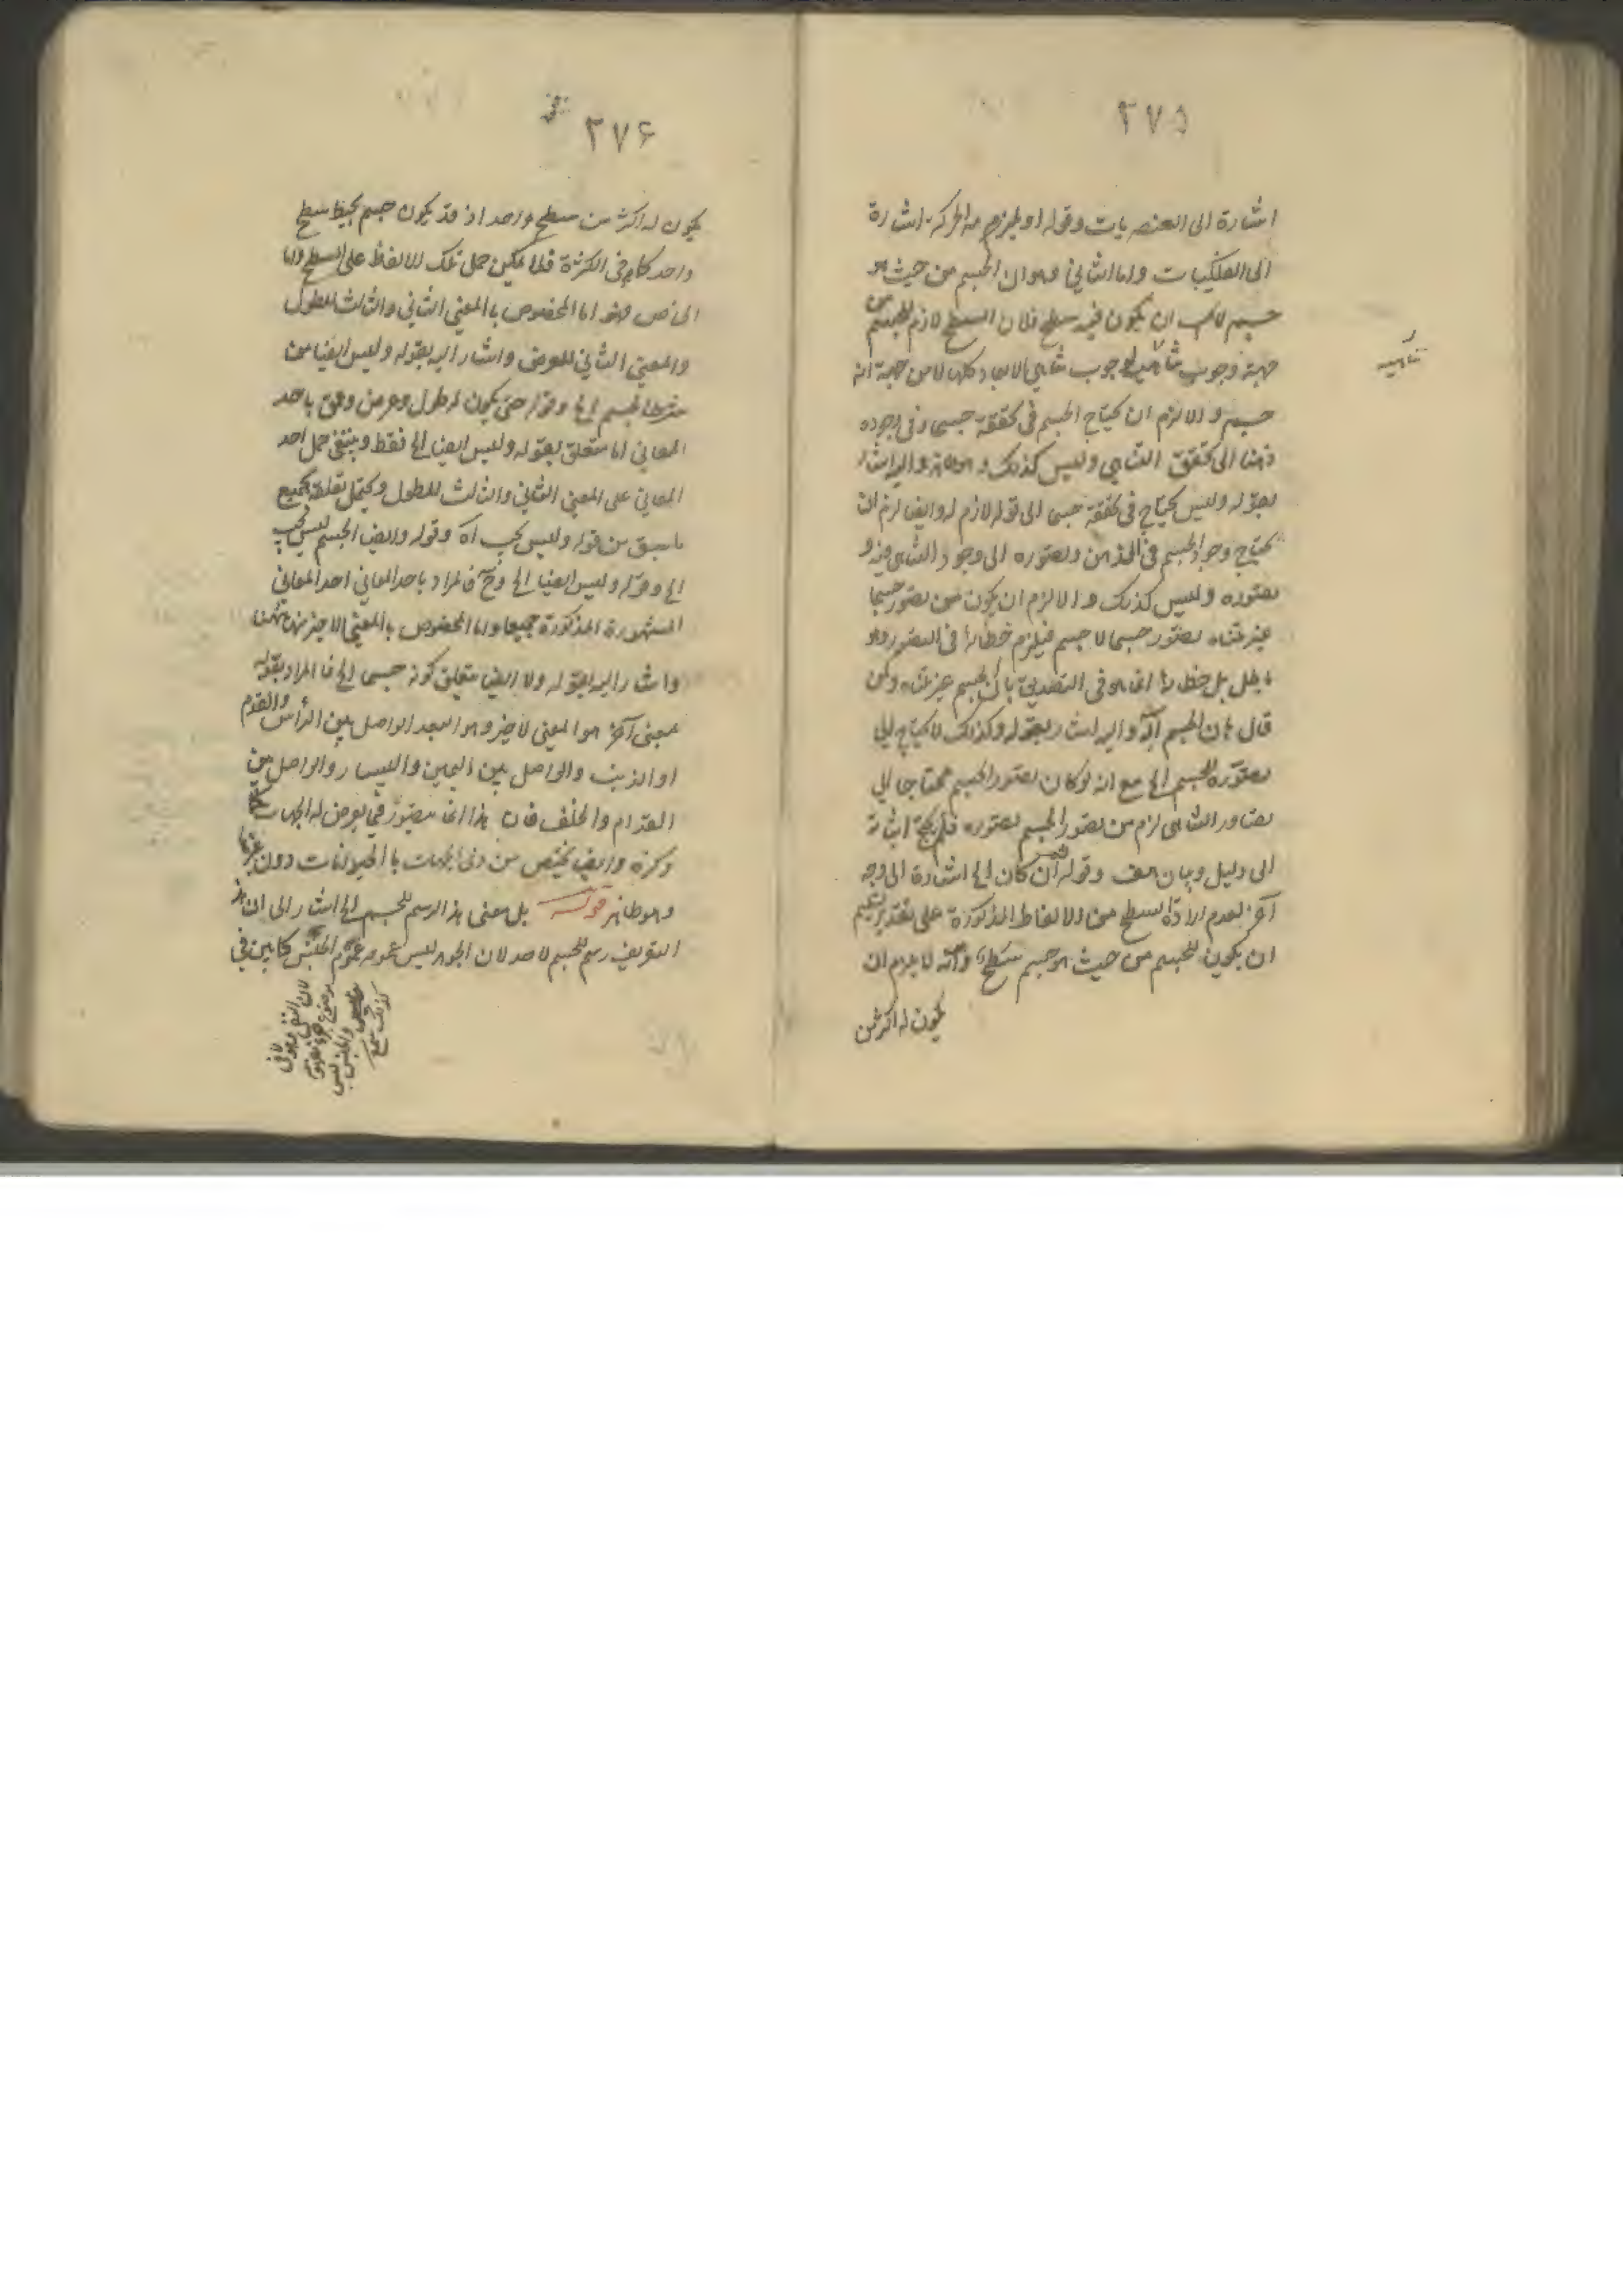 ٢٧٥
اشارة الى العنصريات وقوله او يلزمه الحركة اشارة
الى الفلكيات واما الثاني وهو ان الجسم من حيث هو
جسم لا يجب ان يكون فيه سطح فلان السطح لازم للجسم من
جهة وجوب تناهيه لوجوب تناهي الابعاد كلها لا من جهة انه
تناهيه
جسم والا لزم ان يحتاج الجسم في تحققه جسما وفي وجوده
ذهنا الى تحقق التناهي وليس كذلك واليه اشار
بقوله وليس يحتاج في تحققه جسما الى قوله لازم له وايضا لزم ان
يحتاج وجود الجسم في الذهن وتصوره الى وجود التناهي فيه و
تصوره وليس كذلك والا لزم ان يكون من تصور جسما
غير متناه تصور جسما لا جسم فيلزم خطاؤه في التصور وهو
باطل بل خطاؤه انما هو في التصديق بان الجسم غير متناه وكمن
قال بان الجسم آلة واليه اشار بقوله وكذلك لا يحتاج الى
تصوره للجسم الخ مع انه لو كان تصور الجسم محتاجا الى
تصور التناهي لزم من تصور الجسم تصوره فلم يحتج اثباته
الى دليل وبيان هف وقوله ثم ان كان الخ اشارة الى وجه
آخر لعدم ارادة السطح من الالفاظ المذكورة على تقدير تسليم
ان يكون للجسم من حيث هو جسم سطح وانه لا يلزم ان
يكون له اكثر من
٢٧۶
يكون له اكثر من سطح واحد اذ قد يكون جسم يحيط سطح
واحد كما في الكرة فلا يمكن حمل تلك الالفاظ على السطح واما
الخاص فهو اما المخصوص بالمعنى الثاني والثالث للطول
والمعنى الثاني للعرض واشار اليه بقوله وليس ايضا من
شرط الجسم الخ وقوله حتى يكون له طول وعرض وعمق باحد
المعاني اما متعلق بقوله وليس ايضا الخ فقط وينتفي حمل احد
المعاني على المعنى الثاني والثالث للطول ويحتمل تعلقه بجميع
ما سبق من قوله وليس يجب اه وقوله وايضا الجسم ليس يجب
الخ وقوله وليس ايضا الخ وح فالمراد باحد المعاني احد المعاني
المشهورة المذكورة جميعا واما المخصوص بالمعنى الاخير منها
واشار اليه بقوله ولا ايضا متعلق كونه جسما الخ فالمراد بقوله
بمعنى آخر هو المعنى الاخير وهو البعد الواصل بين الرأس والقدم
او الذنب والواصل بين اليمين واليسار والواصل بين
القدام والخلف فان هذا انما يتصور فيما يعرض له الجهات
ذكره وايضا يختص من ذي الجهات بالحيوانات دون غيرها
وهو ظاهر قوله بل معنى هذا الرسم للجسم الخ اشار الى ان هذا
التعريف رسم للجسم لا حد لان الجوهر ليس عمومه عموم الجنس كما بين في